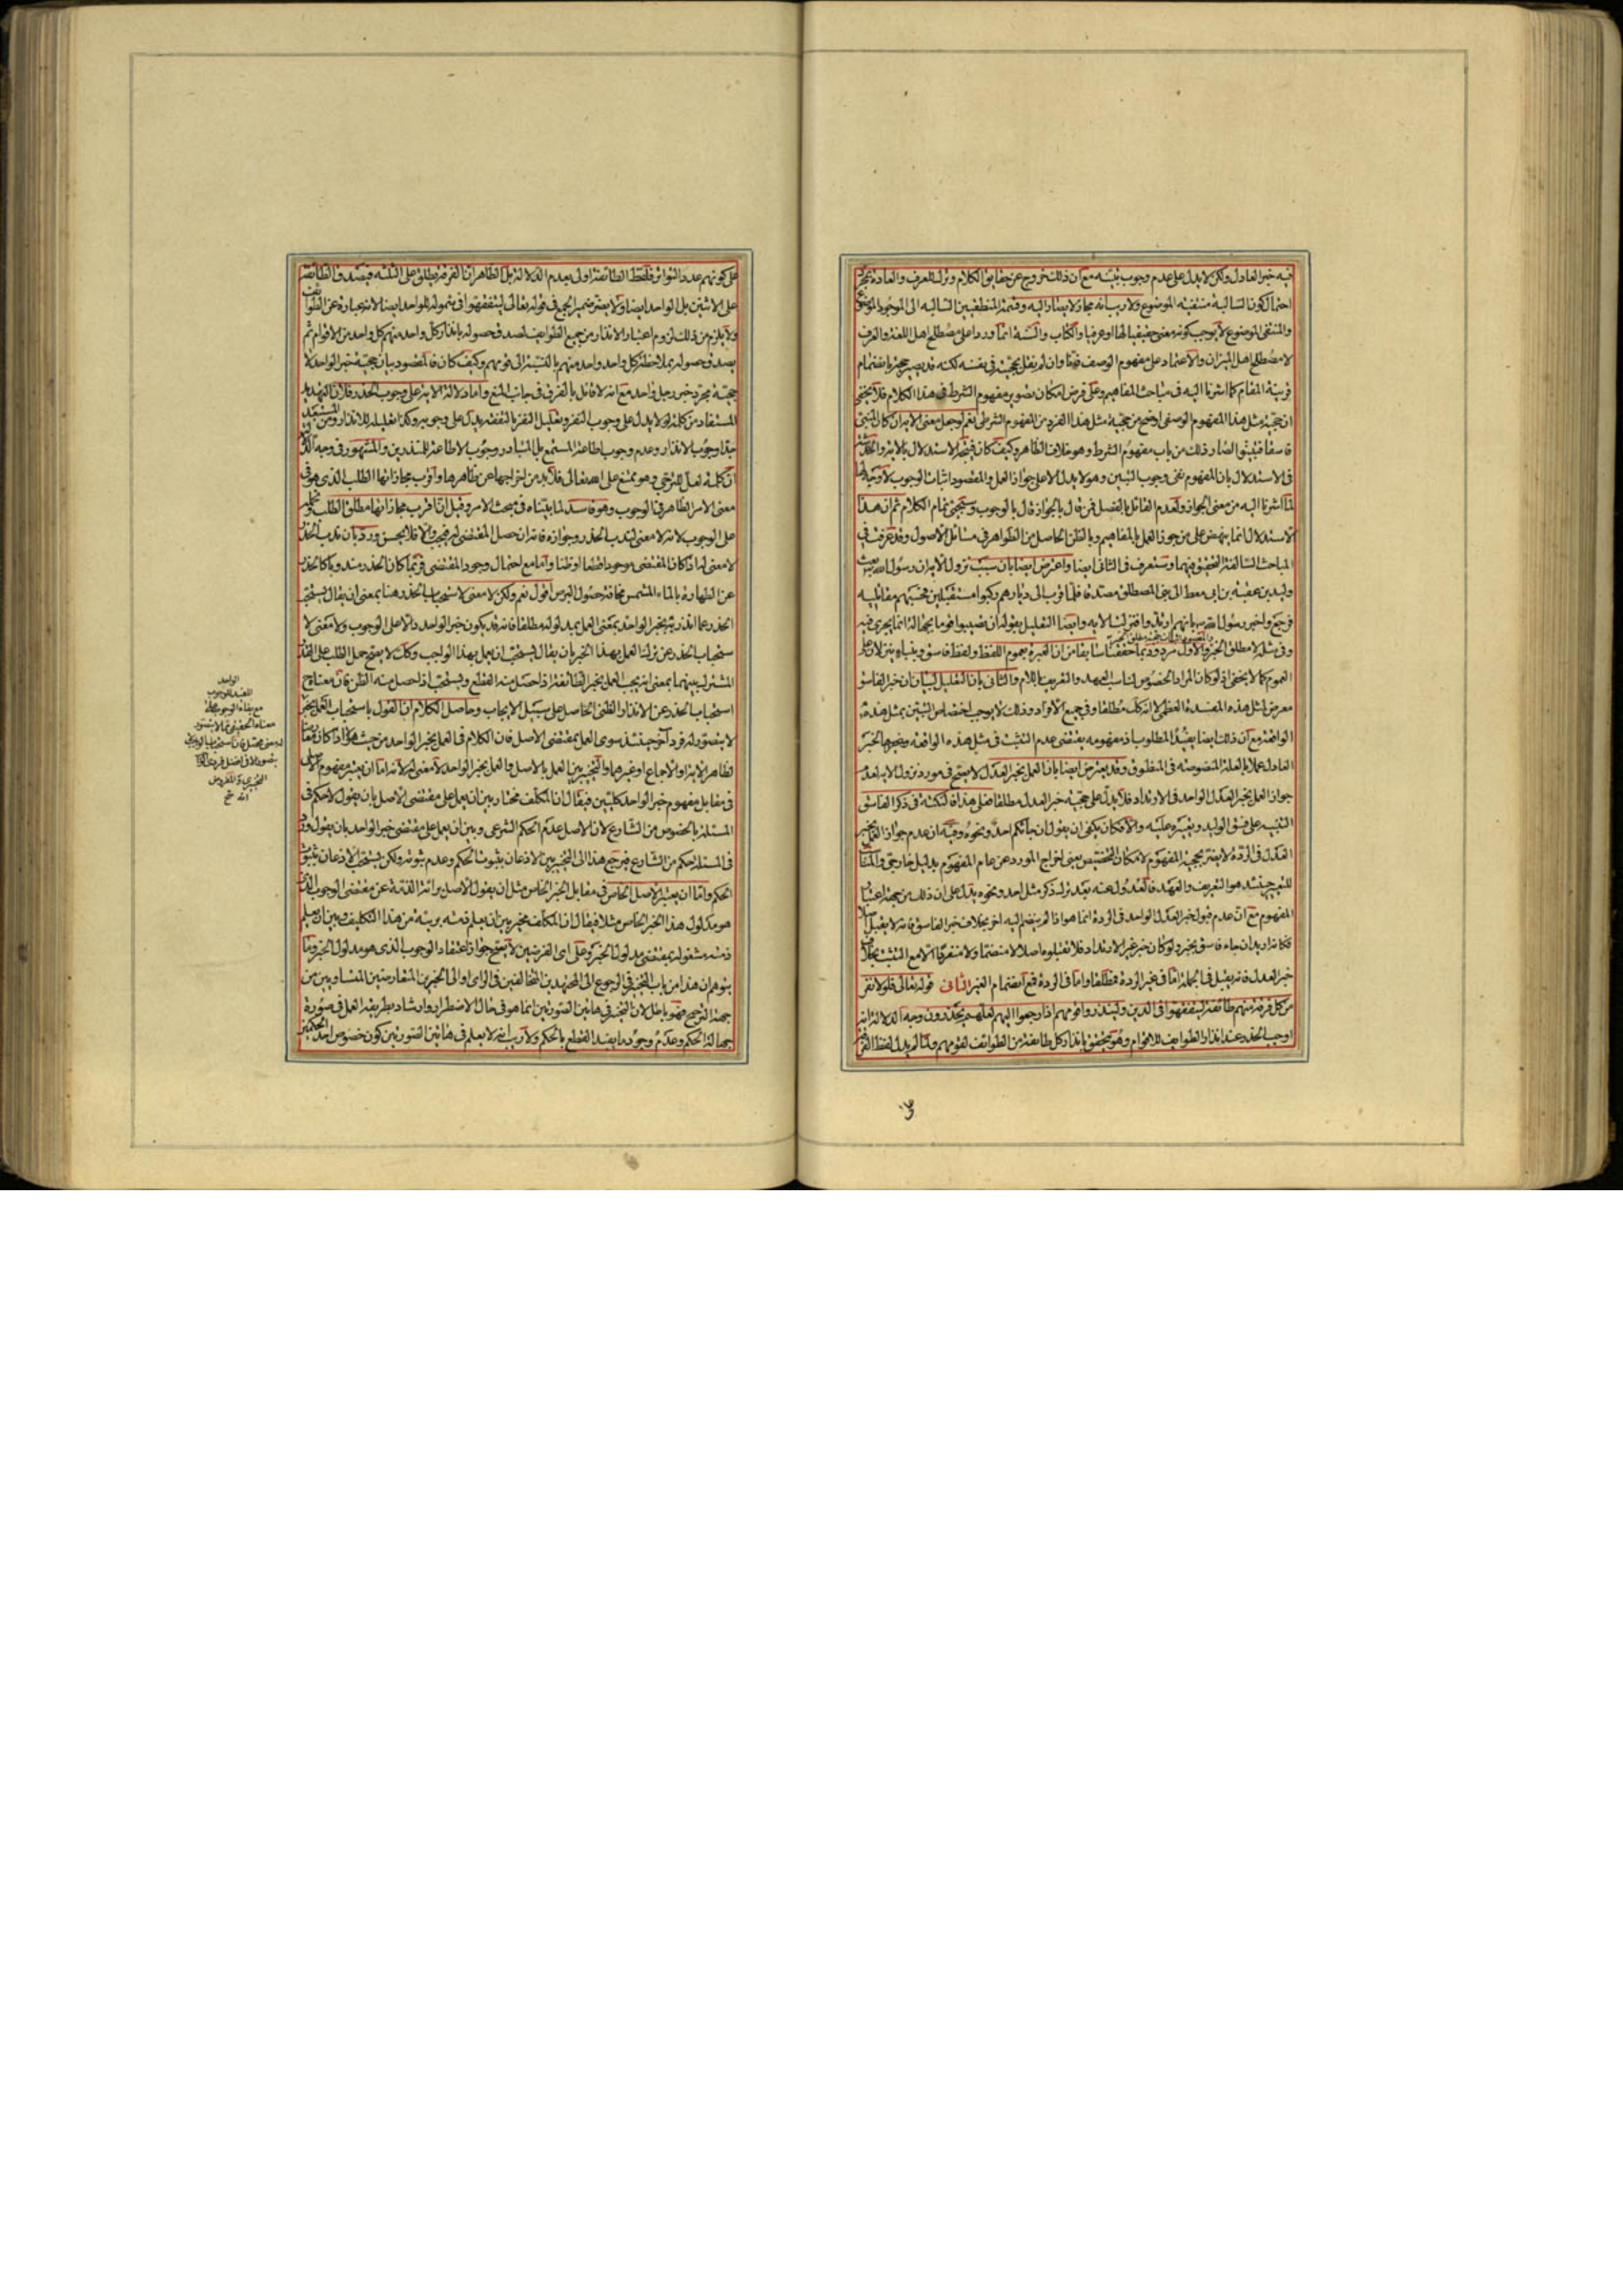 فيه خبر العادل ولكن لا يدل على عدم وجوب تبينه مع ان ذلك خروج عن حقايق الكلام وترك للعرف والعادة بمجرد
احتمال كون السالبة منتفية الموضوع ولا ريب انه مجاز لا يصار اليه وقسمة المنطقيين السالبة الى الموجود الموضوع
والمنتفى الموضوع لا يوجب كونه معنى حقيقيا لها او عرفيا والكتاب والسنة انما وردا على مصطلح اهل اللغة والعرف
لا مصطلح اهل الميزان والاعتماد على مفهوم الوصف فهنا وان لم نقل بحجيته في نفسه لكنه قد يصير حجة بانضمام
قرينة المقام كما اشرنا اليه في مباحث المفاهيم وعلى فرض امكان تصوير مفهوم الشرط في هذا الكلام فلا يخفى
ان حجية مثل هذا المفهوم الوصفي اوضح من حجية مثل هذا الفرد من المفهوم الشرطي نعم لو جعل معنى الاية ان كان المنبئ
فاسقا فتبينوا لصار ذلك من باب مفهوم الشرط وهو خلاف الظاهر وكيف كان فيتجه الاستدلال بالاية والخدشة
في الاستدلال بان المفهوم نفي وجوب التبين وهو لا يدل الا على جواز العمل والمقصود اثبات الوجوب لا وجه لها
لما اشرنا اليه من معنى الجواز ولعدم القائل بالفصل فمن قال بالجواز قال بالوجوب وسيجئ تمام الكلام ثم ان هذا
الاستدلال انما ينهض على من جوز العمل بالمفاهيم وبالظن الحاصل من الظواهر في مسائل الاصول وقد عرفت في
المباحث السالفة التحقيق فيهما وستعرف في الثاني ايضا واعترض ايضا بان سبب نزول الاية ان رسول الله بعث
وليد بن عقبة بن ابي معيط الى بني المصطلق مصدقا فلما قرب الى ديارهم ركبوا مستقبلين فحسبهم مقاتليه
فرجع واخبر رسول الله بانهم ارتدوا فنزلت الاية وايضا التعليل بقوله ان تصيبوا قوما بجهالة انما يجري فيه
وفي مثله لا مطلق الخبر والاول مردود بما حققنا سابقا من ان العبرة بعموم اللفظ ولفظ فاسق ونبا يدلان على
العموم كما لا يخفى اذ لو كان المراد الخصوص لناسب العهد والتعريف باللام والثاني بان التعليل لبيان ان خبر الفاسق
معرض لمثل هذه المفسدة العظمى لا انه كك مطلقا وفي جميع الافراد وذلك لا يوجب اختصاص التبين بمثل هذه
الواقعة مع ان ذلك ايضا يفيد المطلوب اذ مفهومه يقتضي عدم التثبت في مثل هذه الواقعة وغيرها لخبر
العادل عملا بالعلة المنصوصة في المنطوق وقد يعترض ايضا بان العمل بخبر العدل لا يصح في مورد نزول الاية لعدم
جواز العمل بخبر العدل الواحد في الارتداد فلا يدل على حجية خبر العدل مطلقا فعلى هذا فالنكتة في ذكر الفاسق
التنبيه على فسق الوليد وتعييره عليه والا فكان يكفي ان يقول ان جائكم احد ونحوه وفيه ان عدم جواز العمل بخبر
العدل في الردة لا يضر بحجية المفهوم لامكان التخصيص بمعنى اخراج المورد عن عام المفهوم بدليل خارجي والمناسب
للتعيير حينئذ هو التعريف والعهد فالعدول عنه بعد ترك ذكر مثل احد ونحوه يدل على ان ذلك من جهة اعتبار
المفهوم مع ان عدم قبول خبر العدل الواحد في الردة انما هو اذا لم ينضم اليه اخر بخلاف خبر الفاسق فانه لا يقبل اصلا
فكانه اريد ان جاء فاسق بخبر ولو كان خبر غير الارتداد فلا تقبلوه اصلا لا منضما ولا منفردا الا مع التثبت بخلاف
خبر العدل فانه يقبل في الجملة اما في غير الردة فمطلقا واما في الردة فمع انضمام الغير الثاني قوله تعالى فلولا نفر
من كل فرقة منهم طائفة ليتفقهوا في الدين ولينذروا قومهم اذا رجعوا اليهم لعلهم يحذرون وجه الدلالة انه
اوجب الحذر عند انذار الطوايف للاقوام وهو يتحقق بانذار كل طائفة من الطوائف لقومهم ولما لم يدل لفظ الفرقة
على كونهم عدد التواتر فلفظ الطائفة اولى بعدم الدلالة بل الظاهر ان الفرقة يطلق على الثلثة فيصدق الطائفة
على الاثنين بل الواحد ايضا ولا يضر ضمير الجمع في قوله تعالى ليتفقهوا في شموله للواحد ايضا لانه عبارة عن الطوائف
ولا يلزم من ذلك لزوم اعتبار الانذار من جميع الطوايف لصدق حصوله بانذار كل واحد منهم كل واحد من الاقوام ثم
يصدق حصوله بملاحظة كل واحد واحد منهم بالنسبة الى قومهم وكيف كان فالمقصود بيان حجية خبر الواحد لا
حجية مجرد خبر رجل واحد مع انه لا قائل بالفرق في جانب المنع واما دلالة الاية على وجوب الحذر فلان التهديد
المستفاد من كلمة لولا يدل على وجوب النفر وتعليل النفر بالتفقه يدل على وجوبه وكذا تعليله للانذار ومن المستبعد
جدا وجوب الانذار وعدم وجوب اطاعة المستمع بل المتبادر وجوب الاطاعة للمنذرين والمشهور في وجه الدلالة
ان كلمة لعل للترجي وهو ممتنع على الله تعالى فلا بد من اخراجها عن ظاهرها واقرب مجازاتها الطلب الذي هو في
معنى الامر الظاهر في الوجوب وهو فاسد لما بيناه في مبحث الامر وقيل ان اقرب مجازاتها مطلق الطلب
على الوجوب لانه لا معنى لندب الحذر وجوازه فانه ان حصل المقتضي له فيجب والا فلا يحسن ورد بان ندب الحذر
لا معنى له اذا كان المقتضي موجودا قطعا او ظنا واما مع احتمال وجود المقتضي فربما كان الحذر مندوبا كالحذر
عن الطهارة بالماء المشمس مخافة حصول البرص اقول نعم ولكن لا معنى لاستحباب الحذر هنا بمعنى ان يقال يستحب
الحذر عما انذر به بخبر الواحد بمعنى العمل بمدلوله مطلقا فانه قد يكون خبر الواحد دالا على الوجوب ولا معنى لا
ستحباب الحذر عن ترك العمل بهذا الخبر بان يقال يستحب ان يعمل بهذا الواجب وكك لا يصح حمل الطلب على القدر
المشترك بينهما بمعنى انه يجب العمل بخبر الطائفة اذا حصل منه القطع ويستحب اذا حصل منه الظن فان معناه ح
استحباب الحذر عن الانذار الظني الحاصل على سبيل الايجاب وحاصل الكلام ان القول باستحباب العمل بخبر
لا يتصور له فرد آخر حينئذ سوى العمل بمقتضى الاصل فان الكلام في العمل بخبر الواحد من حيث هو
فظاهر الاية او الاجماع او غيرهما والتخيير بين العمل بالاصل والعمل بخبر الواحد لا معنى له لانه اما ان يعتبر مفهوم الاصل
في مقابل مفهوم خبر الواحد كليتين فيقال ان المكلف مختار بين ان يعمل على مقتضى الاصل بان يقول لا حكم في
المسئلة بالخصوص من الشارع لان الاصل عدم الحكم الشرعي وبين ان يعمل على مقتضى خبر الواحد بان يقول ورد
في المسئلة حكم من الشارع فيرجع هذا الى التخيير بين الاذعان بثبوت الحكم وعدم ثبوته ولكن يستحب الاذعان بثبوت
الحكم واما ان يعتبر الاصل الخاص في مقابل الخبر الخاص مثل ان يقول الاصل برائة الذمة عن مقتضى الوجوب الذي
هو مدلول هذا الخبر الخاص مثلا فيقال ان المكلف مخير بين ان يعلم ذمته بريئة من هذا التكليف وبين ان يعلم
ذمته مشغولة بمقتضى مدلول الخبر وعلى اي الفرضين لا يصح جواز اعتقاد الوجوب الذي هو مدلول الخبر وما
يتوهم ان هذا من باب التخيير في الرجوع الى المجتهدين المتخالفين في الراى او الى الخبرين المتعارضين المتساويين من
جهة الترجيح فهو باطل لان التخيير في هاتين الصورتين انما هو في حال الاضطرار وارشاد بطريقة العمل في صورة
جهالة الحكم وعدم وجود ما يفيد القطع بالحكم ولا ريب انه لا يعلم في هاتين الصورتين كون خصوص احد الحكمين
الواحد
المفيد للوجوب
مع بقاء الوجوب على
معناه الحقيقي مما لا يتصور